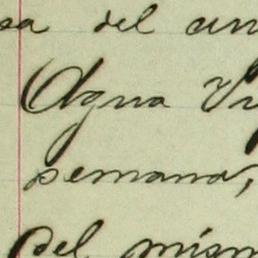 sa del an
Agua Vi
semana,
del mism